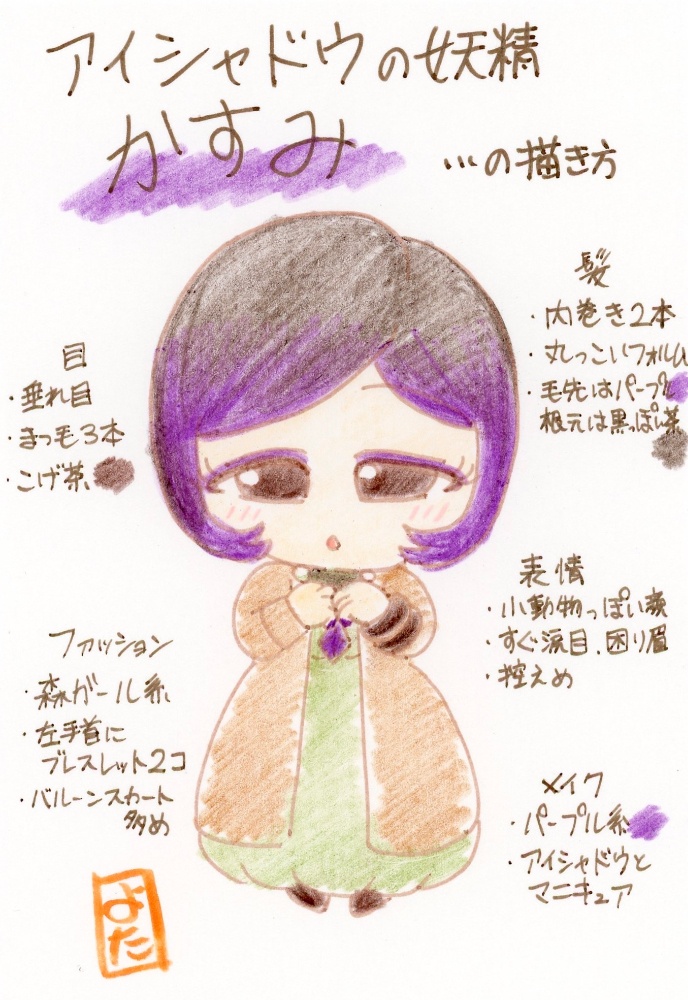 アイシャドウの妖精
かすみ
…の描き方
髪
・内巻き2本
・丸っこいフォルム
・毛先はパープル
根元は黒っぽい茶
目
・垂れ目
・まつ毛3本
・こげ茶
表情
・小動物っぽい顔
・すぐ涙目、困り眉
・控えめ
ファッション
・森ガール系
・左手首に
ブレスレット2コ
・バルーンスカート
多め
メイク
・パープル系
・アイシャドウと
マニキュア
よた